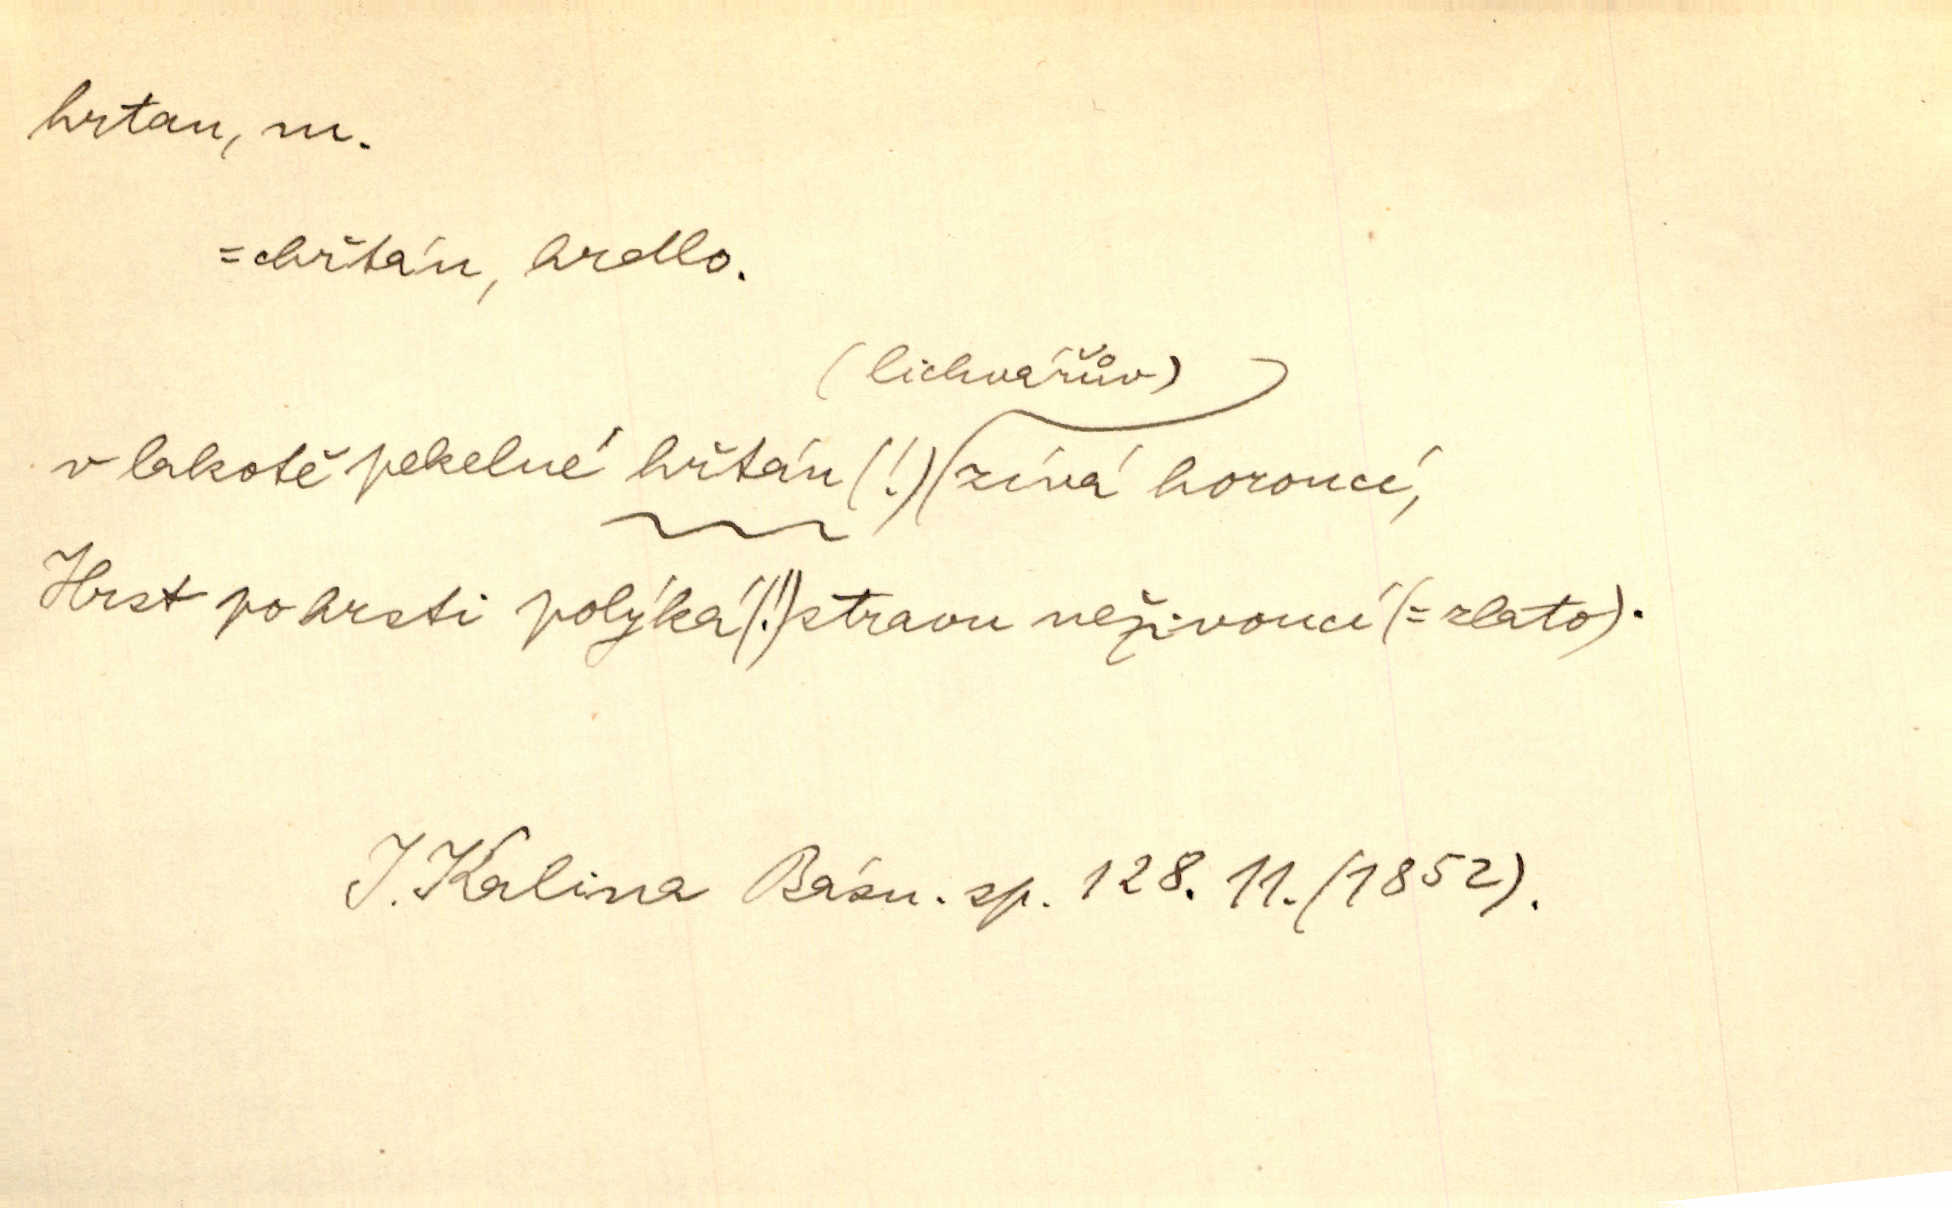 hrtan, m.
=chřtán, hrdlo.
(lichvářův)
v lakotě pekelné hřtán (!) zívá horoucí,
Hrst po hrsti polýká (!) stravu neživoucí (= zlato).
J. Kalina Básn. sp. 128. 11. (1852).